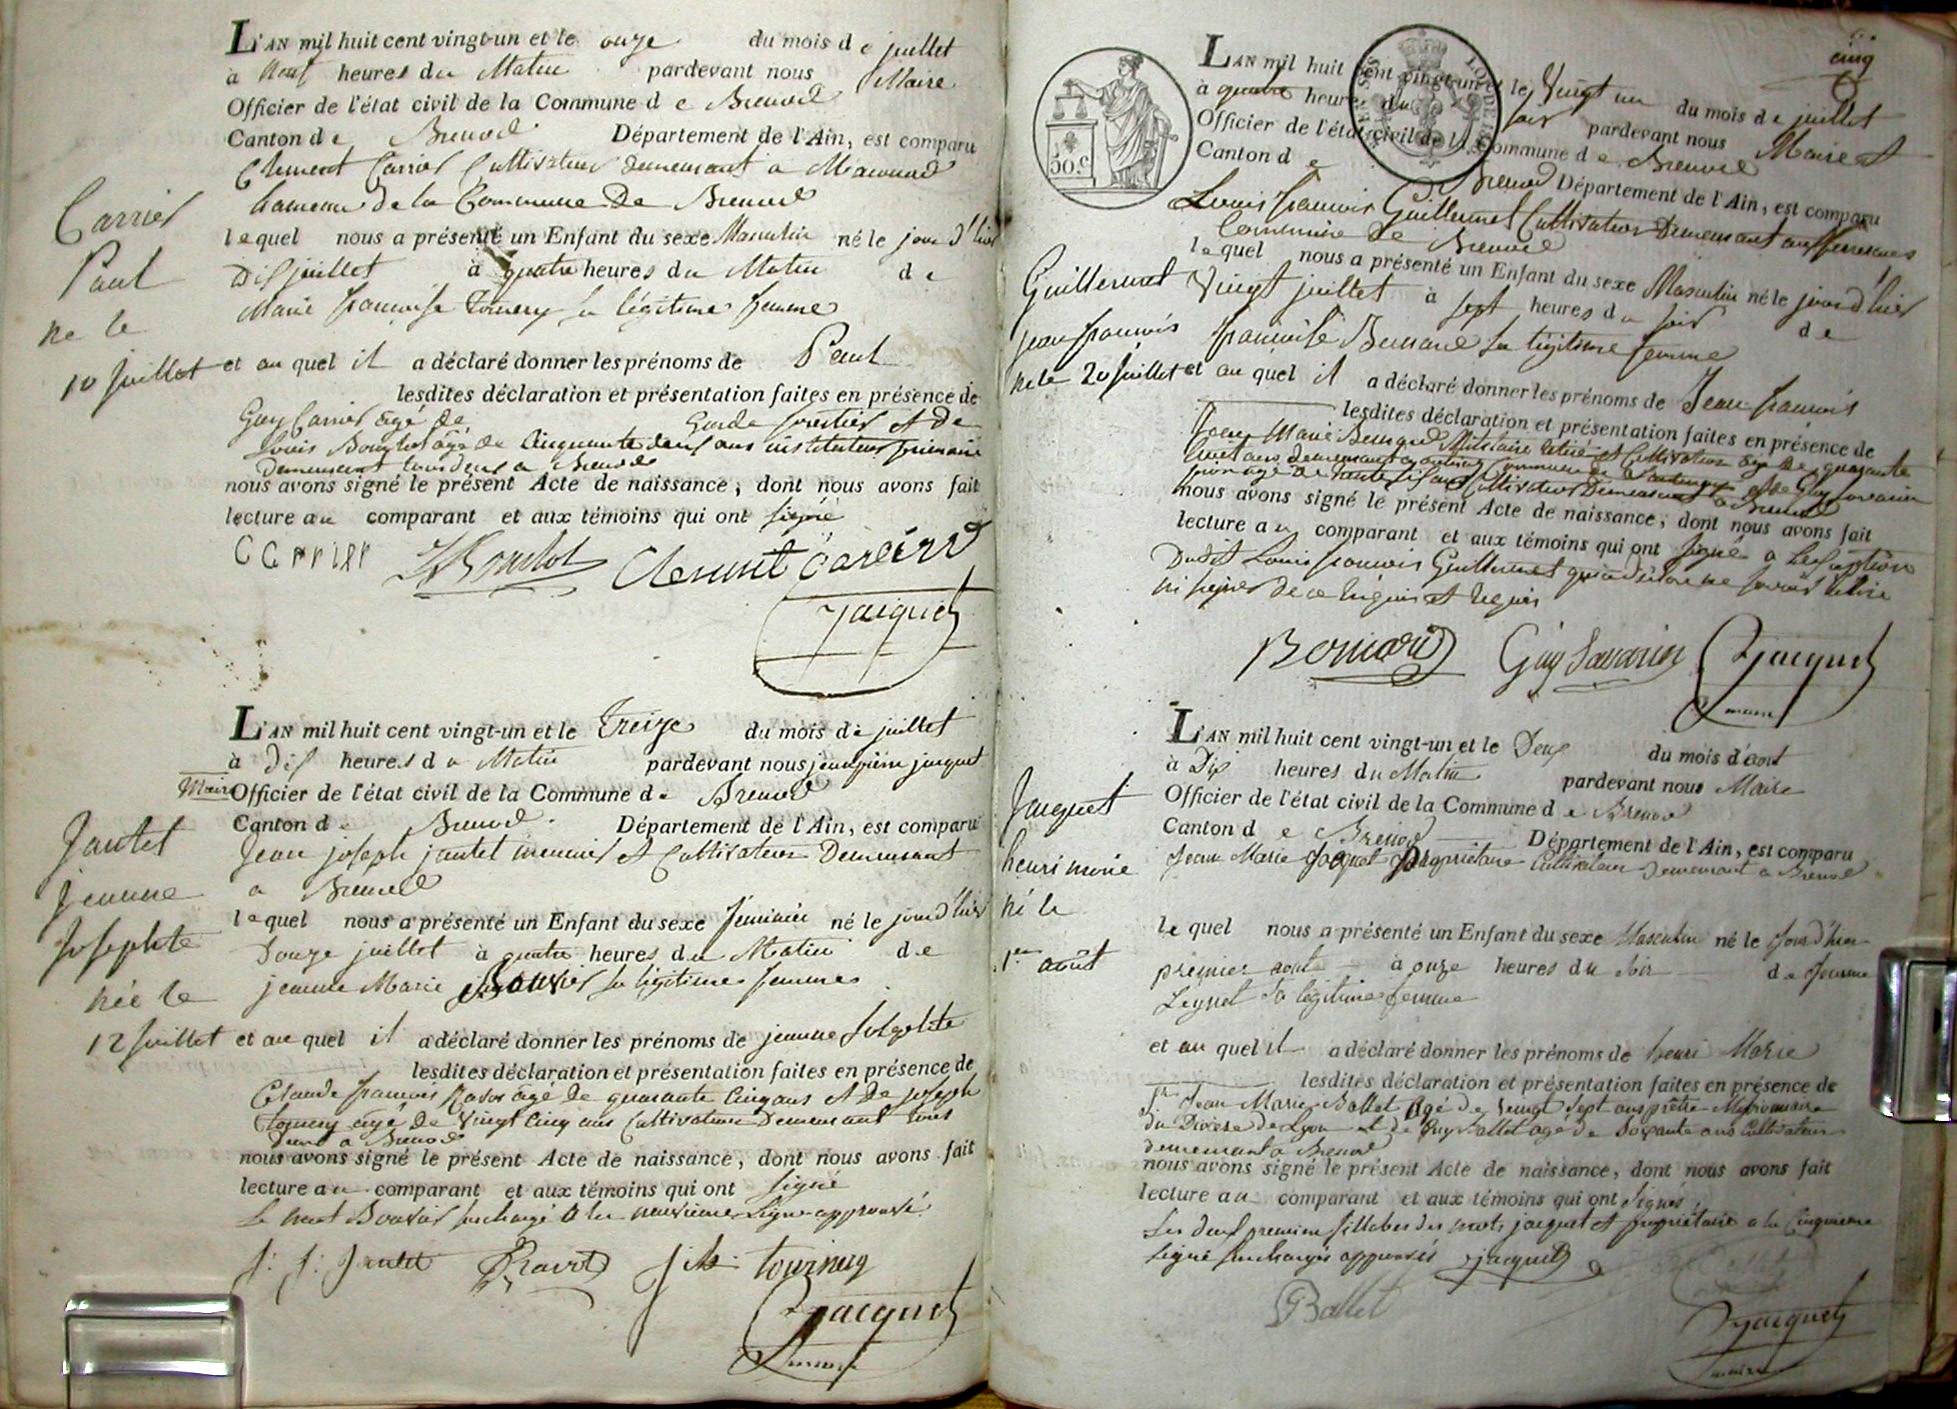 L'AN mil huit cent vingt-un et le onze du mois de juillet
à neuf heures du Matin pardevant nous Maire
Officier de l'état civil de la Commune de Brenod
Canton de Brenod Département de l'Ain, est comparu
Clement Carrier Cultivateur demeurant a
hameau de la Commune de Brenod
lequel nous a présenté un Enfant du sexe Masculin né le jour d'hier
Dix juillet à quatre heures du Matin de
Marie françoise Tournery sa légitime femme
et au quel il a déclaré donner les prénoms de Paul
lesdites déclaration et présentation faites en présence de
Guy Carrier agé de Garde forestier et de
Louis agé de Cinquante deux ans instituteur primaire
Demeurant tous deux a Brenod
nous avons signé le présent Acte de naissance, dont nous avons fait
lecture au comparant et aux témoins qui ont signé
Carrier
Paul
né le
10 juillet
CARRIER Clement Carrier
Jacquet
L'AN mil huit cent vingt-un et le Treize du mois de juillet
à dix heures du Matin pardevant nous jean pierre jacquet
Maire Officier de l'état civil de la Commune de Brenod
Canton de Brenod Département de l'Ain, est comparu
Jean joseph jantet et Cultivateur Demeurant
a Brenod
lequel nous a présenté un Enfant du sexe féminin né le jour d'hier
Douze juillet à quatre heures du Matin de
jeanne Marie Bouvier sa légitime femme
et au quel il a déclaré donner les prénoms de jeanne Josephte
lesdites déclaration et présentation faites en présence de
Claude françois Ravot agé de quarante Cinq ans et de joseph
Tournery agé de Vingt Cinq ans Cultivateurs Demeurant tous
Deux a Brenod
nous avons signé le présent Acte de naissance, dont nous avons fait
lecture au comparant et aux témoins qui ont signé
Le mot Bouvier surchargé a la neuvieme Ligne approuvé
Jantet
jeanne
Josephte
née le
12 juillet
J: J: Jantet Ravot Jh: tournery
Jacquet
maire
cinq
50 c
L'AN mil huit cent vingt-un et le Vingt un du mois de juillet
à quatre heures du soir pardevant nous Maire et
Officier de l'état civil de la Commune de Brenod
Canton de Brenod Département de l'Ain, est comparu
Louis françois Guillermet Cultivateur Demeurant
Commune de Brenod
lequel nous a présenté un Enfant du sexe Masculin né le jour d'hier
Vingt juillet à sept heures du soir de
françoise sa légitime femme
et au quel il a déclaré donner les prénoms de Jean françois
lesdites déclaration et présentation faites en présence de
Jean Marie Militaire retiré et Cultivateur agé de quarante
huit ans demeurant Commune de et de Guy
agé de ans Cultivateur Demeurant a Brenod
nous avons signé le présent Acte de naissance, dont nous avons fait
lecture au comparant et aux témoins qui ont signé a l'exception
Dudit Louis françois Guillermet qui a déclaré ne savoir Ecrire
ni signer de ce Enquis et Requis
Guillermet
jean françois
né le 20 juillet
Guy Savarin Jacquet
maire
L'AN mil huit cent vingt-un et le Deux du mois d'août
à Dix heures du Matin pardevant nous Maire
Officier de l'état civil de la Commune de Brenod
Canton de Brenod Département de l'Ain, est comparu
Jean Marie Jacquet Propriétaire Cultivateur Demeurant a Brenod
lequel nous a présenté un Enfant du sexe Masculin né le jour d'hier
premier août à onze heures du soir de Jeanne
sa légitime femme
et au quel il a déclaré donner les prénoms de henri Marie
lesdites déclaration et présentation faites en présence de
Sr. Jean Marie Ballet Agé de Vingt Sept ans prêtre Missionnaire
du Diocese de Lyon et de Guy Ballet agé de Soixante ans Cultivateur
demeurant a Brenod
nous avons signé le présent Acte de naissance, dont nous avons fait
lecture au comparant et aux témoins qui ont Signés
Les deux premieres sillabes des mots jacquet et propriétaire a la Cinquieme
Ligne surchargés approuvés jacquet
Jacquet
henri marie
né le
1er août
Ballet
Jacquet
maire